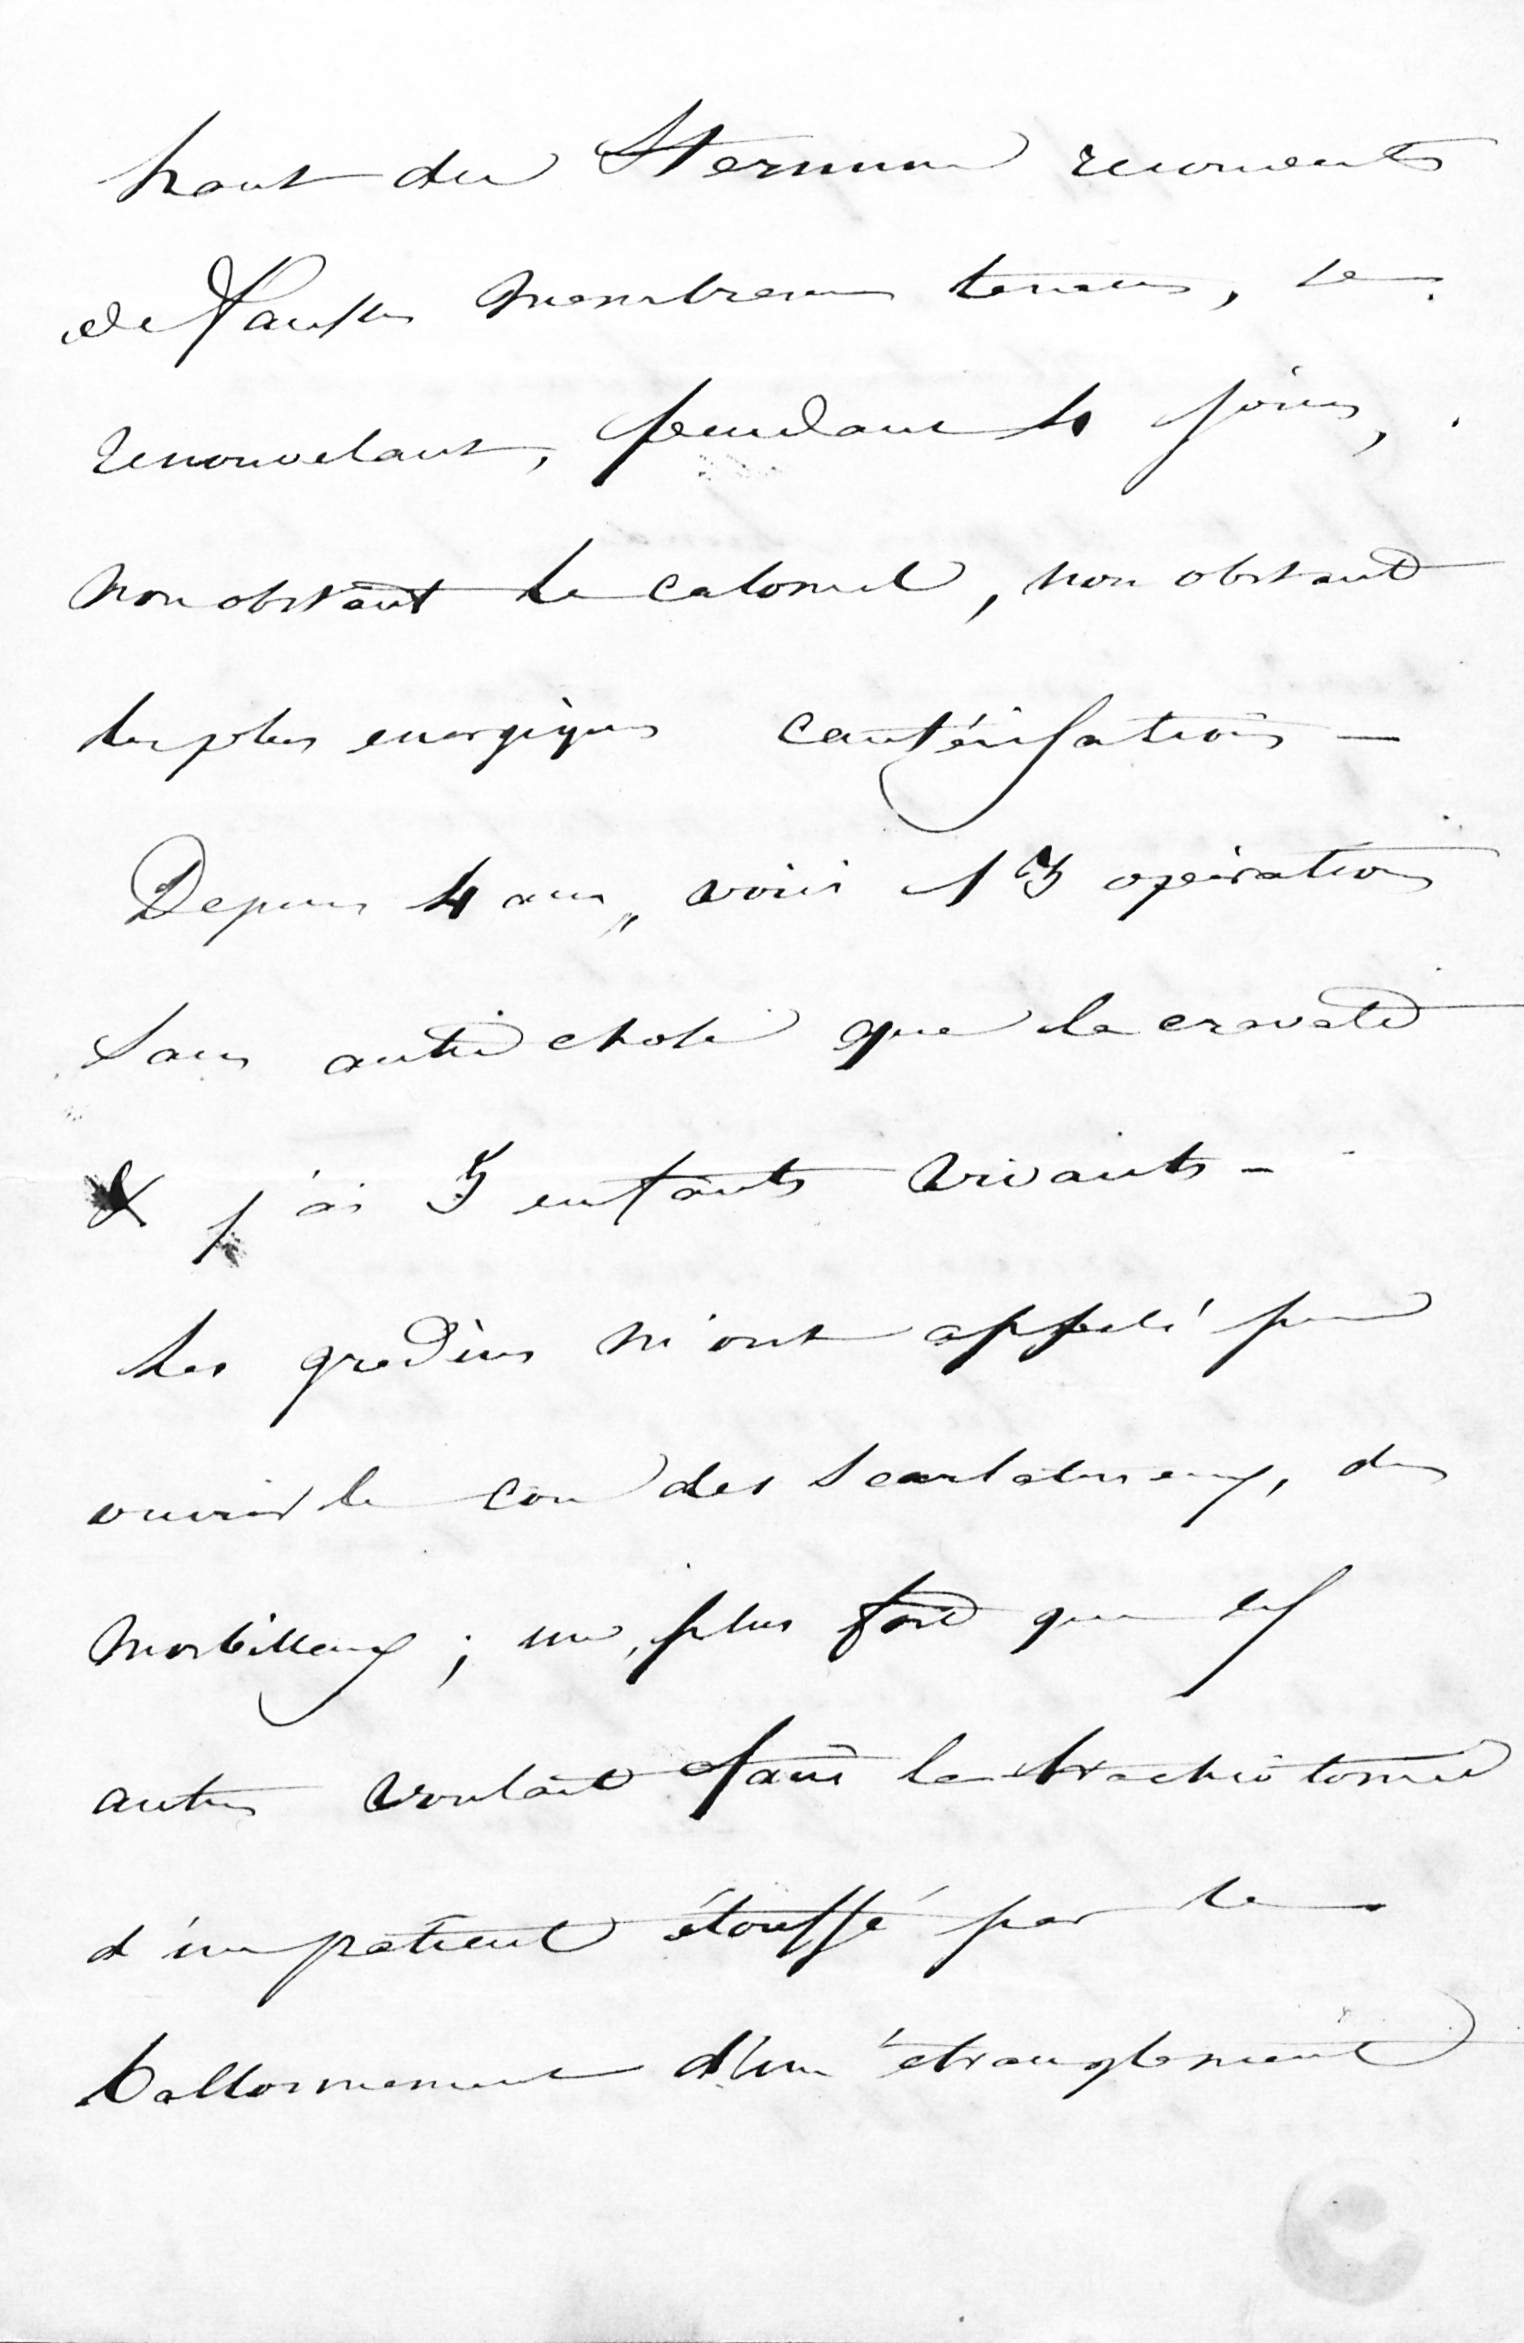 haut du Sternum recouverts
de fausses membranes tenaces, se
renouvelant, pendant 4 jours,
nonobstant le calomel, non obstant
les plus energiques cautérisations —
Depuis 4 ans, voici 15 opérations
sans autre chose que la cravate
& j'ai 5 enfants vivants -
les gredins m'ont appelé pour
ouvrir le cou des scarlatineux, des
morbilleux ; un, plus fort que les
autres voulait faire la trachéotomie
d'un patient étouffé par le
ballonnement d'un étranglement